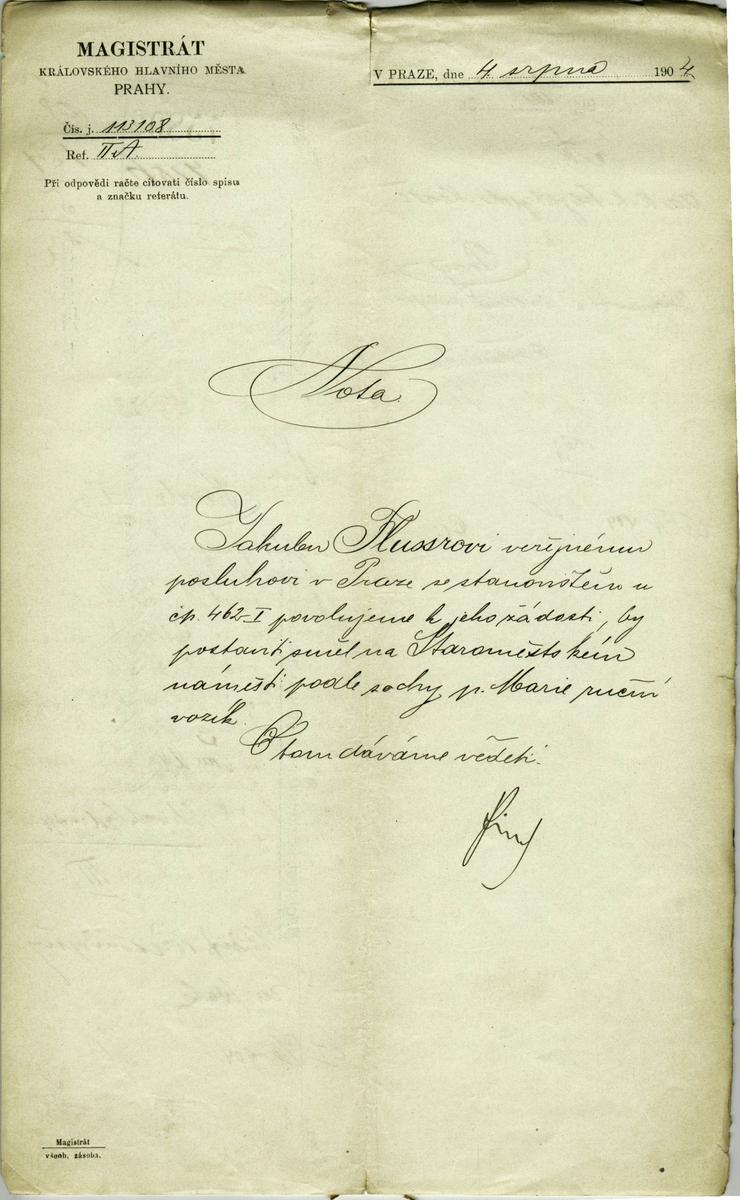 MAGISTRÁT
KRÁLOVSKÉHO HLAVNÍHO MĚSTA
PRAHY.
V PRAZE, dne 4. srpna 1904
Čís. j. 113108
Ref. II A.
Při odpovědi račte citovati číslo spisu
a značku referátu.
Nota
Jakubu Flussrovi veřejnému
posluhovi v Praze se stanovištěm u
čp. 462-I povolujeme k jeho žádosti, by
postaviti směl na Staroměstském
náměstí podle sochy p. Marie ruční
vozík.
O tom dáváme věděti.
Magistrát
všeob. zásoba.